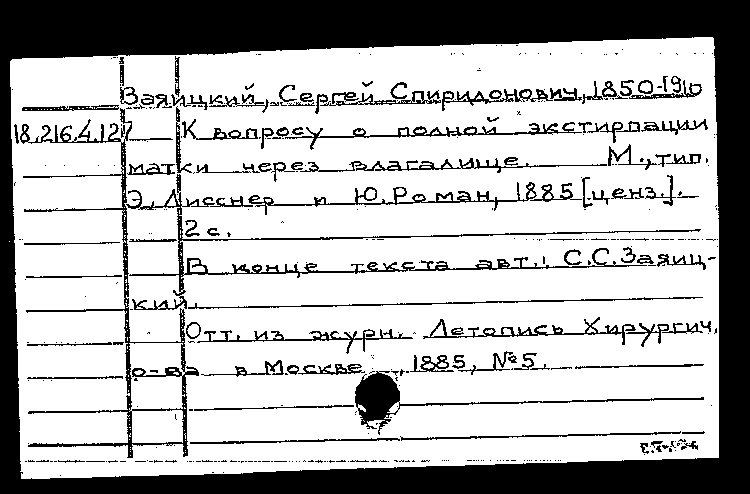 Заяицкий, Сергей Спиридонович, 1850-1910
18.216.4.127 К вопросу о полной экстирпации
матки через влагалище. М., тип.
Э. Лисснер и Ю. Роман, 1885 [ценз.].
2 с.
В конце текста авт.: С.С. Заяиц-
кий.
Отт. из журн. Летопись Хирургич.
о-ва в Москве, 1885, №5.